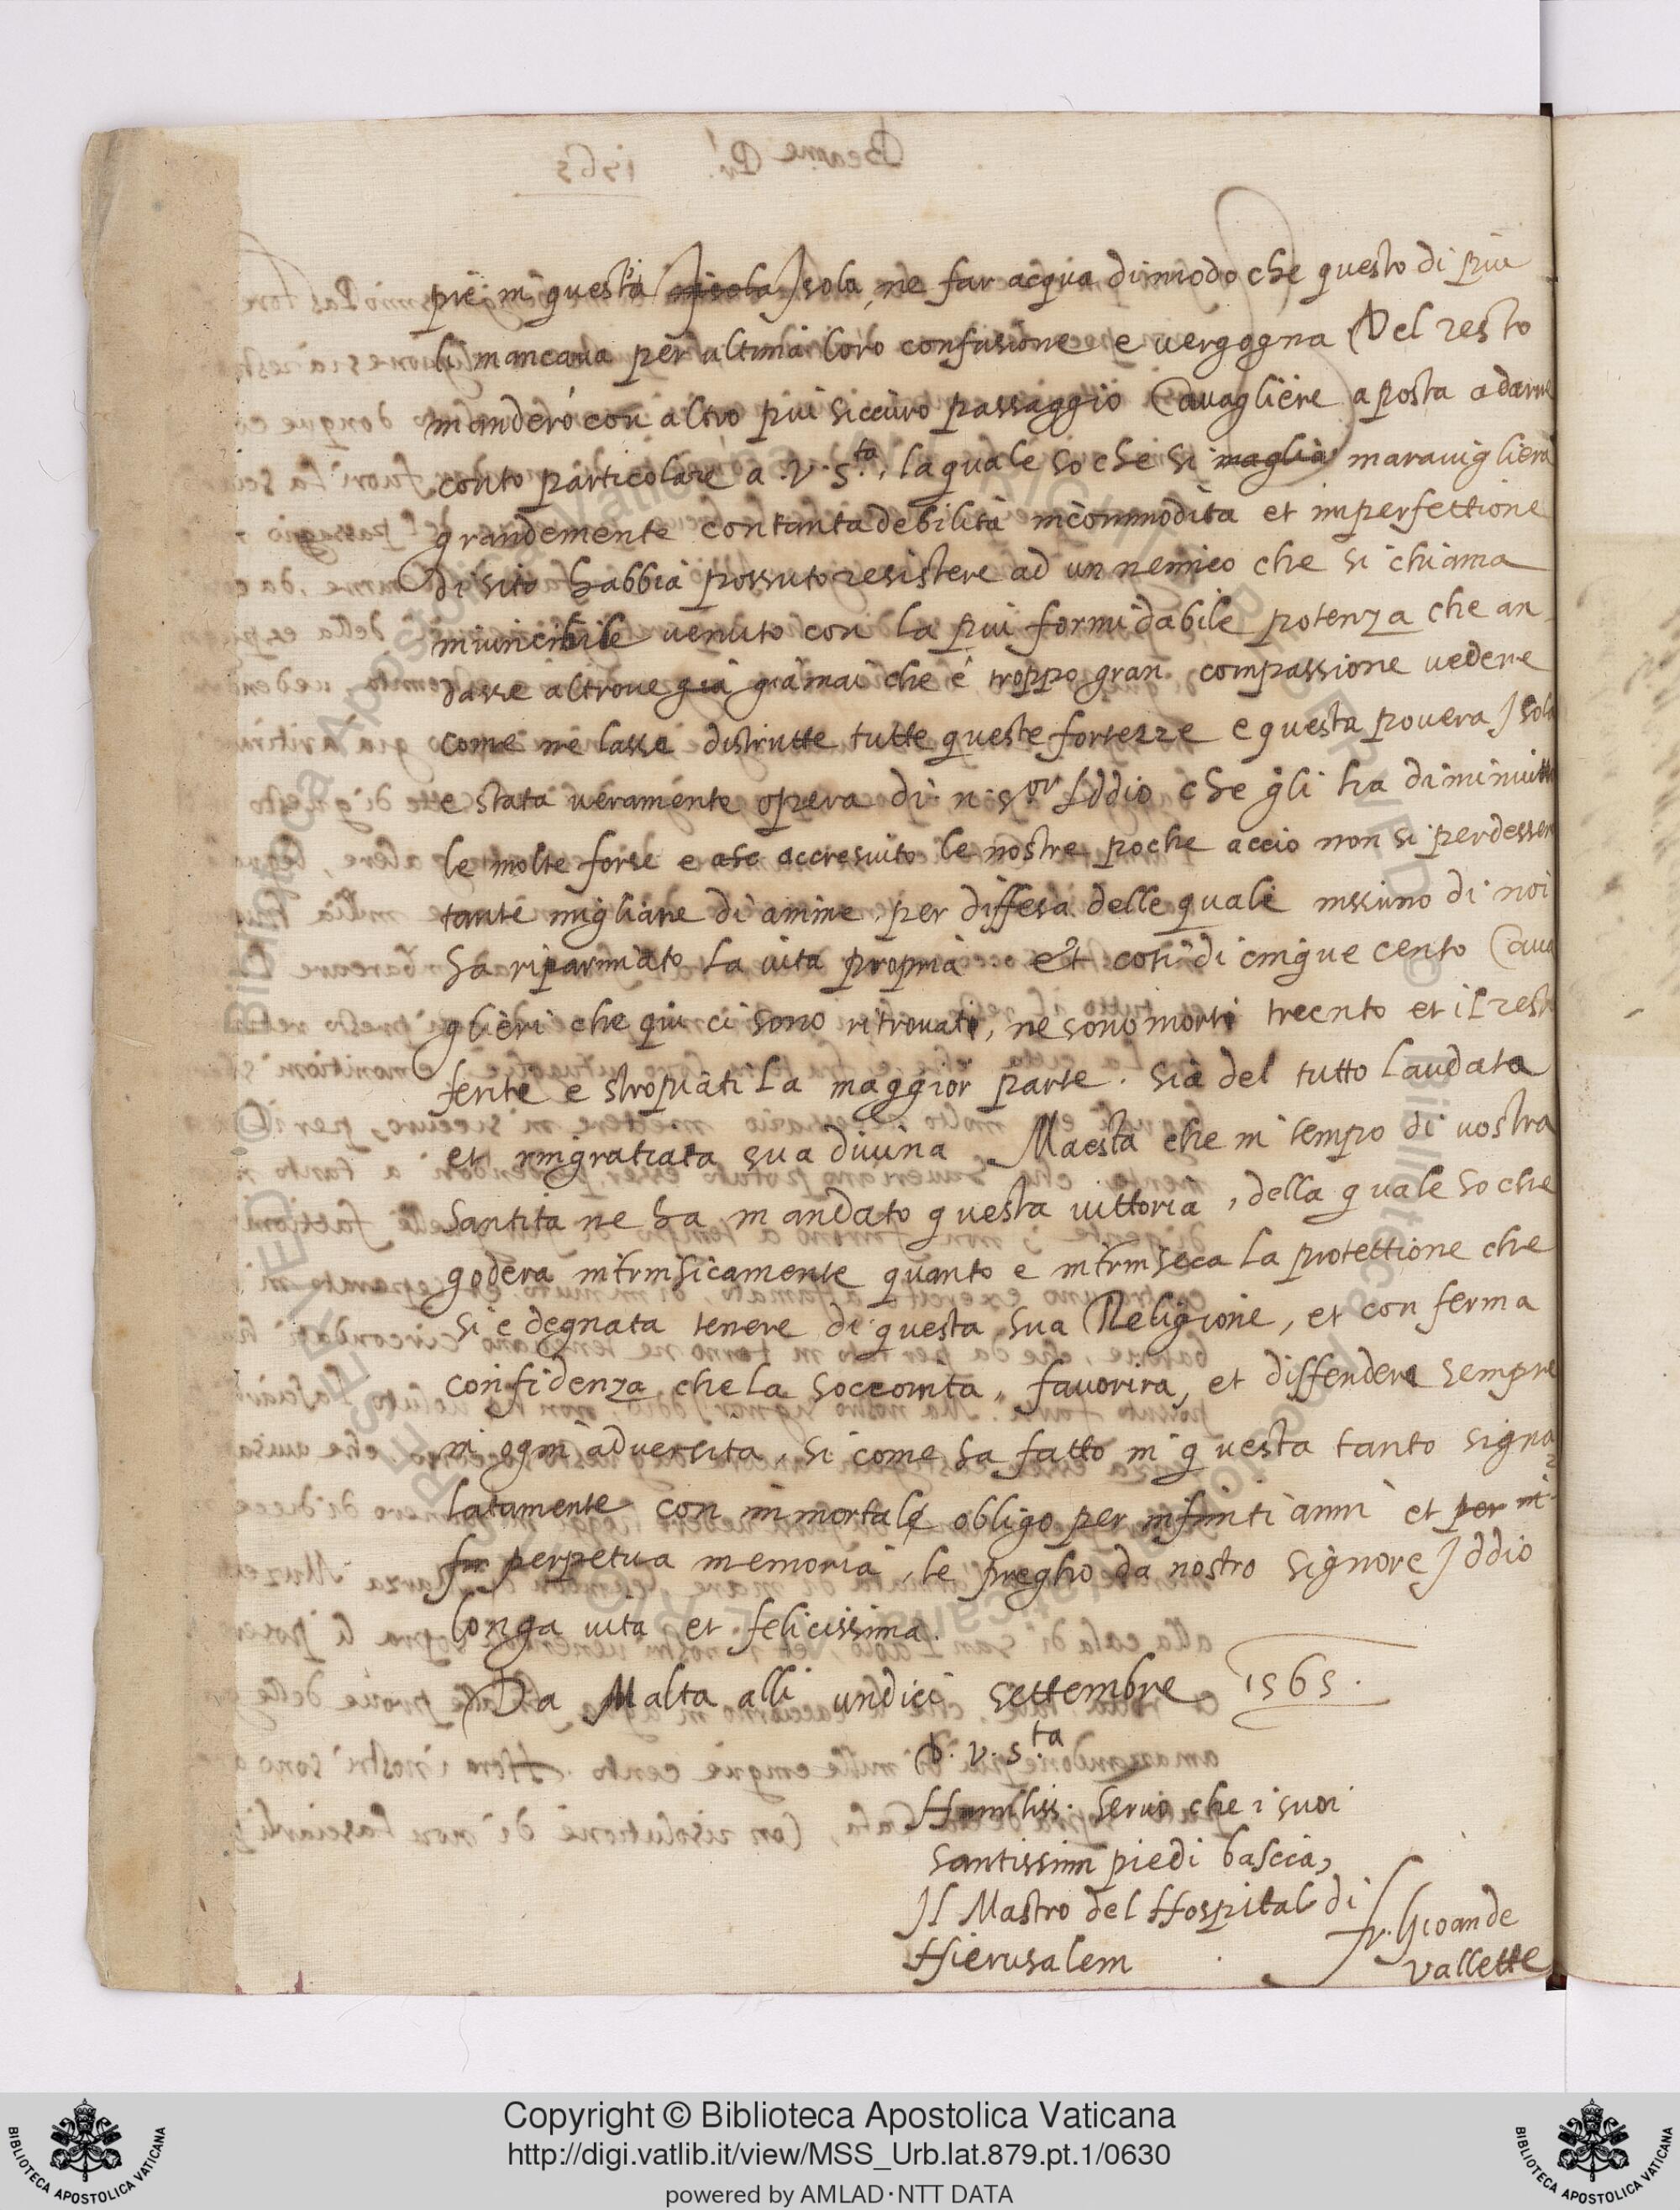 pie in questa isola Isola, ne far acqua dimodo che questo di piu
li mancaua per ultima loro confusione e uergogna Del resto
manderó con altro piu siccuro passaggio Cauagliere a posta a darne
conto particolare a .V.S.ta, la quale so che si maglia marauigliera
grandemente con tanta debilita incommodita et imperfettione
di sito habbia possuto resistere ad un nemico che si chiama
inuincibile uenuto con la piu formidabile potenza che an
dasse altroue già giamai che é troppo gran compassione uedere
come ne lasse distrutte tutte queste fortezze e questa pouera Isola
e stata ueramente opera di n. s.or Iddio che gli ha diminuitto
le molte forse e asc accresuito le nostre poche accio non si perdesser
tante migliare di anime, per diffesa delle quale nissuno di noi
ha riparmiato la uita propria et cosi di cinque cento Caua
glieri che qui ci sono ritrouati, ne sono morti trecento et il resto
ferite e stropiati la maggior parte. Sia del tutto laudata
et ringratiata sua diuina Maesta che in tempo di uostra
santita ne ha mandato questa uittoria, della quale so che
godera intrinsicamente quanto e intrinseca la protettione che
si e degnata tenere di questa sua Religione, et con ferma
confidenza che la soccorira, fauorira, et diffendera sempre
in ogni aduersita, si come ha fatto in questa tanto signa
latamente con immortale obligo per infiniti anni et per in
fin perpetua memoria, le pregho da nostro signore Iddio
longa uita et felicissima.
Da Malta alli undici settembre 1565.
D. V. S.ta
Humiliss. seruo che i suoi
santissimi piedi bascia,
Il Mastro del Hospital di
Hierusalem
fr. Gioan de
Vallette
Copyright © Biblioteca Apostolica Vaticana
http://digi.vatlib.it/view/MSS_Urb.lat.879.pt.1/0630
powered by AMLAD·NTT DATA
BIBLIOTECA APOSTOLICA VATICANA
BIBLIOTECA APOSTOLICA VATICANA